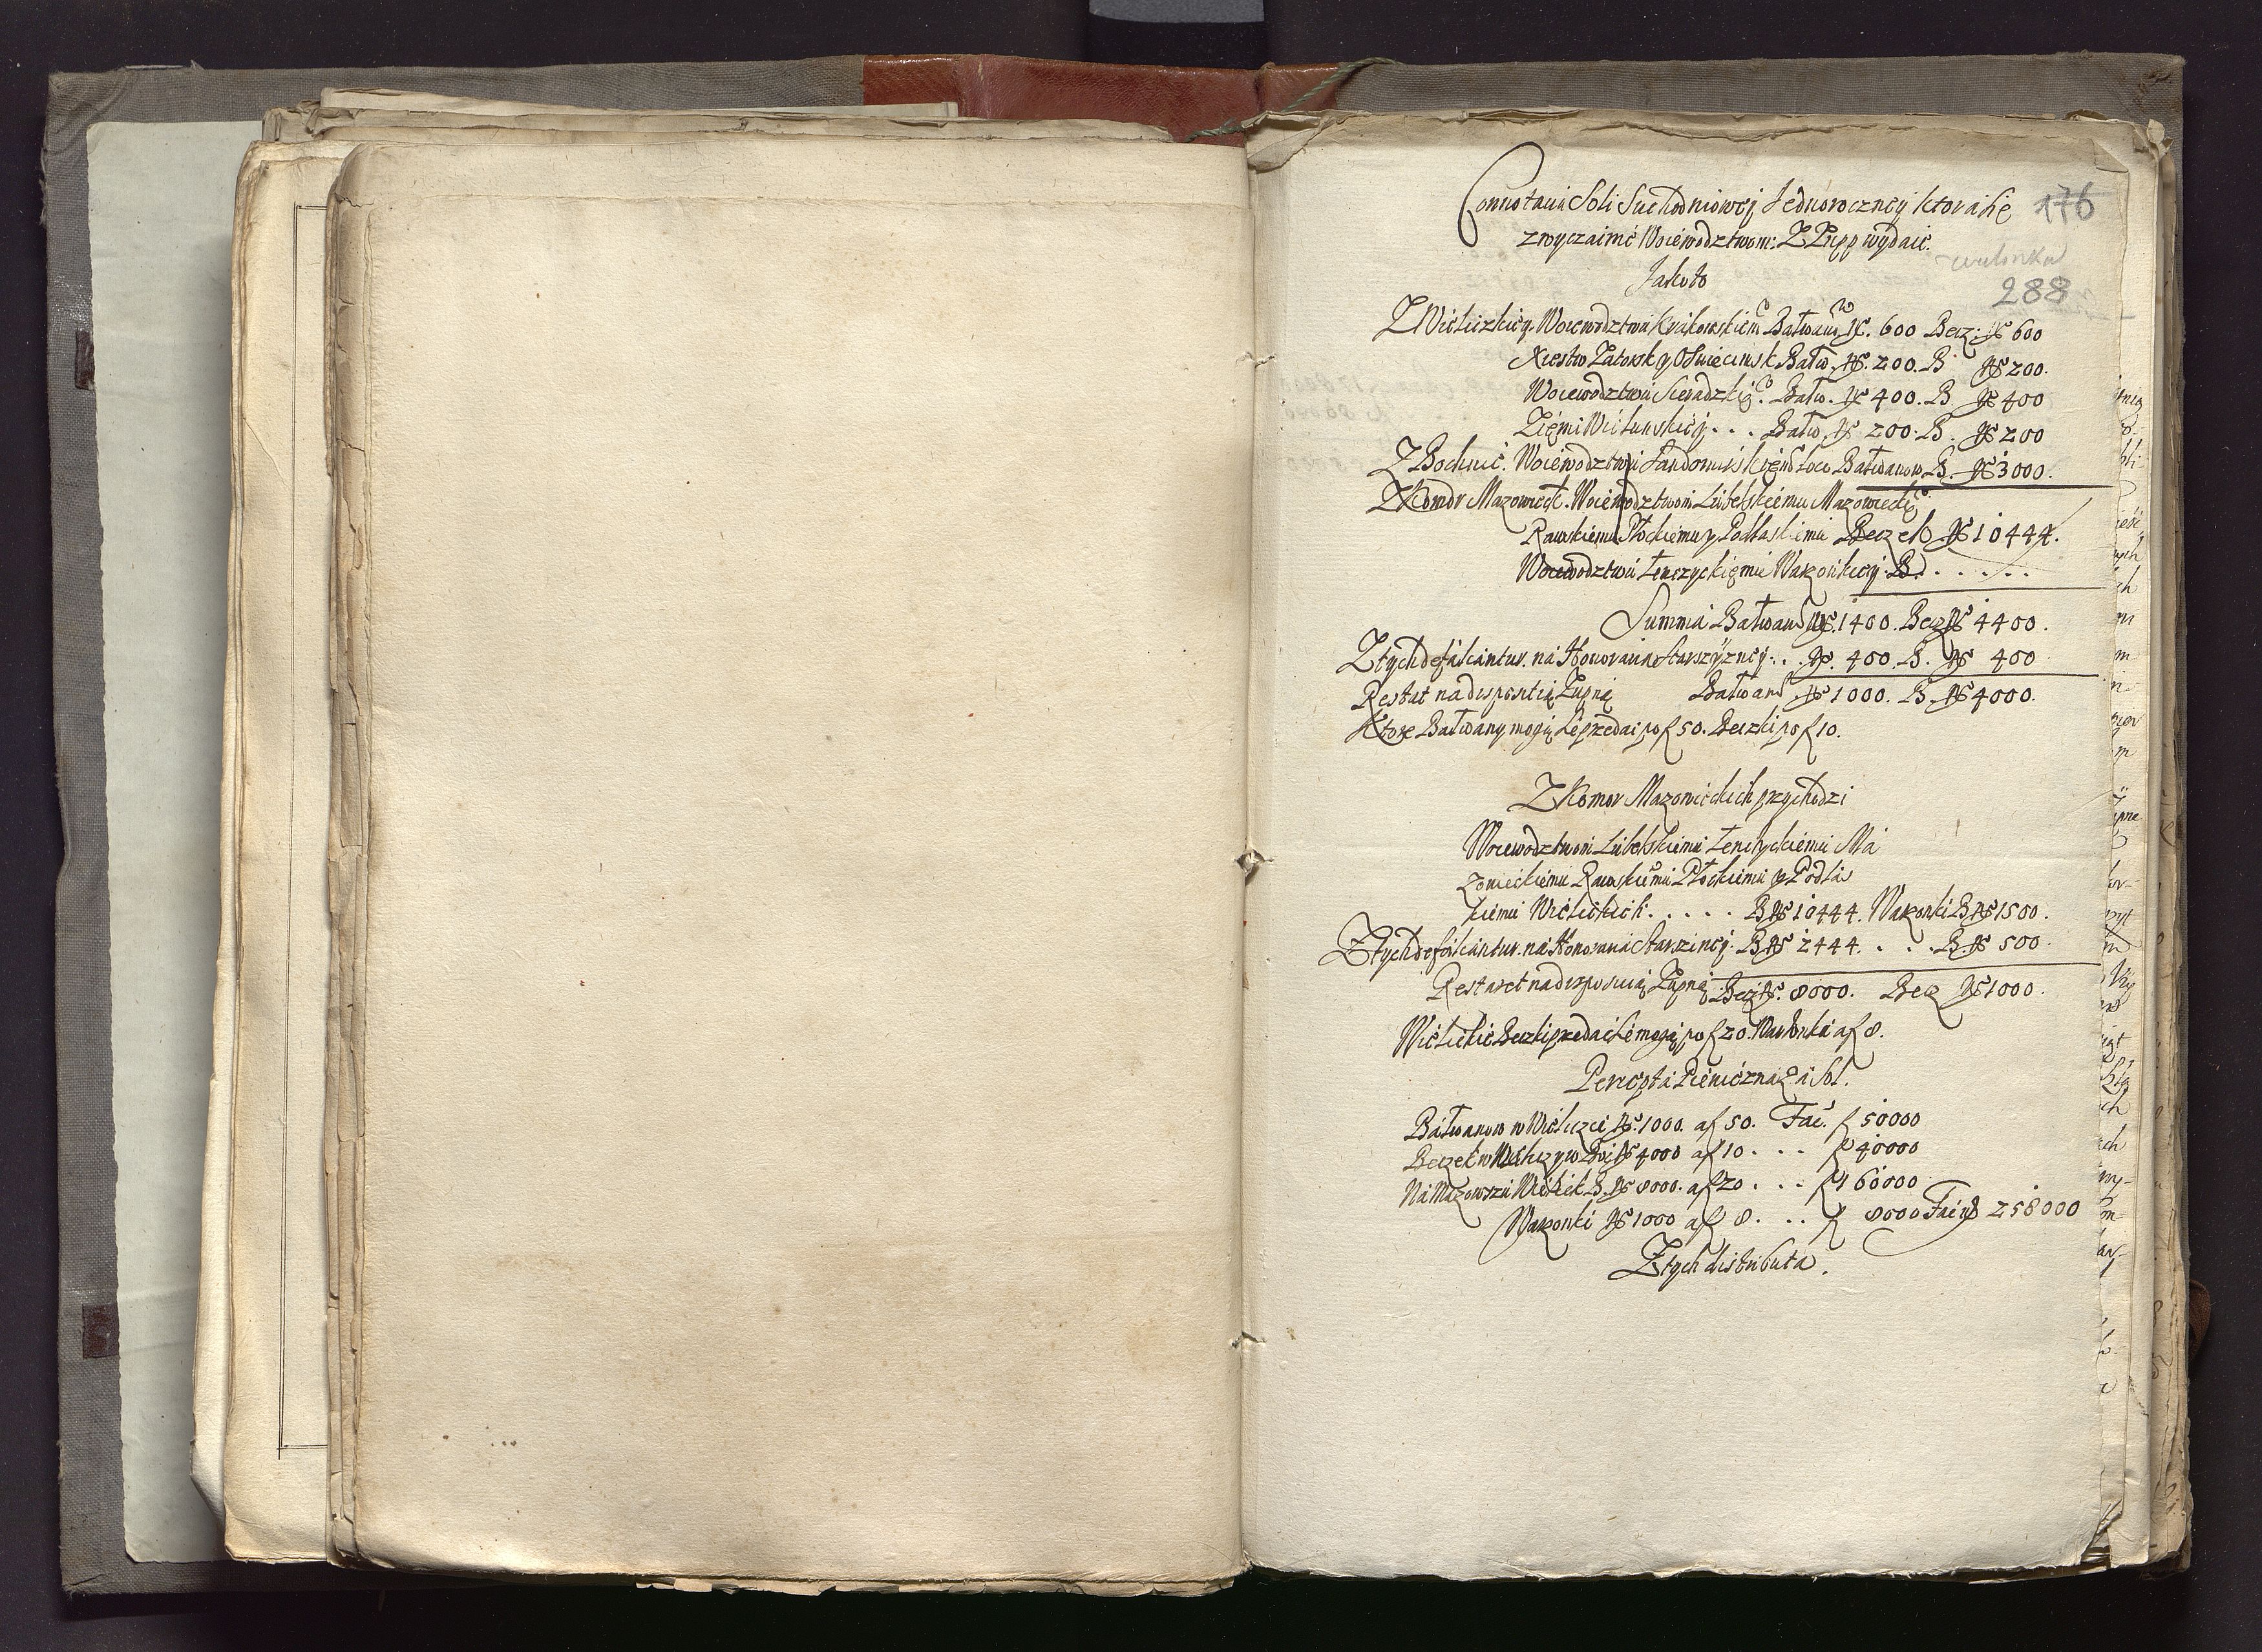 Connotacia Soli Suchedniowey Jednoroczney ktora się 176
zwyczainie Woiewodztwom Z Zupp wydaie.
288
Jako to
Z Wieliczkiey. Woiewodztwu Krakowskiem Bałwanow № 600 Becz: № 600
Xiestw Zatorsk y Oswiecimsk Bałw. № 200. B № 200.
Woiewodztwu Sieradzkie Bałw. № 400. B № 400
Ziemi Wieluńskiey . . . Bałw № 200. B. № 200
Z Bochnie. Woiewodztwu Sandomirskiem loco Bałwanow B. № 3000.
Z Komor Mazowieck. Woiewodztwom Lubelskiemu Mazowieckie
Rawskiemu Płockiemu y Podlaskiemu Beczek № 10444.
Woiewodztwu Łenczyckiemu Warzonkiey B. . . . . .
Summa Bałwan № 1400. Becz № 4400.
Z tych defalcantur. na Honoraria Starszyzney . . № 400. B. № 400
Restat na disposition Zupną Bałwan № 1000. B. № 4000.
Ktore Bałwany mogą się przedać po f 50. Beczki po f 10.
Z Komor Mazowieckich przychodzi
Woiewodztwom Lubelskiemu Łenczyckiemu Ma
zowieckiemu Rawskiemu Płockiemu y Podlas
kiemu Wielickich. . . . . B № 10444. Warzonki B № 1500.
Z tych defalcantur. na Honoraria Starszincy. B № 2444. . . . B. № 500.
Restaret na disposicią Zupną Becz №. 8000. Becz № 1000.
Wielickie Beczki przedać się mogą po f 20. Warzonki a f 8.
Percepta Pieniężna za Sol.
Bałwanow w Wieliczce № 1000. af 50. Fac. f 50000
Beczek w Wieliczce y w Boc № 4000 af 10 . . . f 40000
Na Mazowszu Wielick B. № 8000. af 20 . . . f 160000
Warzonki № 1000 af 8. . . . f 8000 Facit 258000
Z tych distributa.